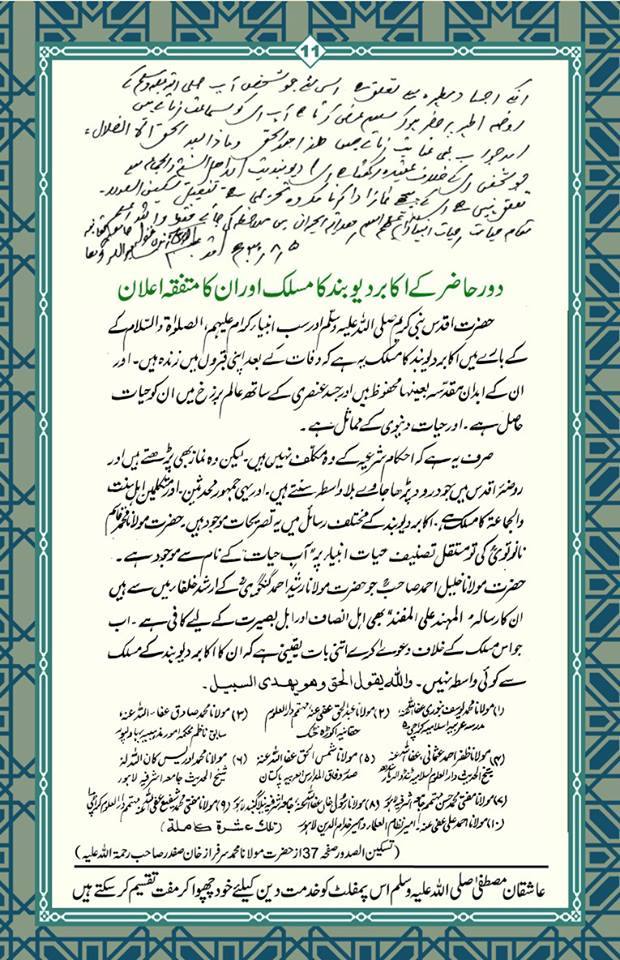 11
انکے اجساد مطہرہ سے تعلق ہے اسی لئے جو شخص آپ صلی اللہ علیہ وسلم کے
روضہ اطہر پر حاضر ہو کر سلام عرض کرتا ہے آپ اس کو سماعت فرماتے ہیں
اور جواب بھی عنایت فرماتے ہیں هذا هو الحق وماذا بعد الحق الا الضلال
جو شخص اس کے خلاف عقیدہ رکھتا ہے
تعلق نہیں ہے اس کے پیچھے نماز ادا کرنا مکروہ تحریمی ہے۔ تفصیل تسکین الصدور۔
مقام حیات
دور حاضر کے اکابر دیوبند کا مسلک اور ان کا متفقہ اعلان
حضرت اقدس نبی کریم صلی اللہ علیہ وسلم اور سب انبیاء کرام علیہم الصلوٰۃ والسلام کے
کے بارے میں اکابر دیوبند کا مسلک یہ ہے کہ وفات کے بعد اپنی قبروں میں زندہ ہیں۔ اور
ان کے ابدان مقدسہ بعینہا محفوظ ہیں اور جسد عنصری کے ساتھ عالم برزخ میں ان کو حیات
حاصل ہے۔ اور حیات دنیوی کے مماثل ہے۔
صرف یہ ہے کہ احکام شرعیہ کے وہ مکلف نہیں ہیں۔ لیکن وہ نماز بھی پڑھتے ہیں اور
روضۂ اقدس میں جو درود پڑھا جاوے بلا واسطہ سنتے ہیں۔ اور یہی جمہور محدثین۔ اور متکلمین اہل سنت
والجماعۃ کا مسلک ہے۔ اکابر دیوبند کے مختلف رسائل میں یہ تصریحات موجود ہیں۔ حضرت مولانا محمد قاسم
نانوتویؒ کی تو مستقل تصنیف حیات انبیاء پر "آب حیات" کے نام سے موجود ہے۔
حضرت مولانا خلیل احمد صاحبؒ جو حضرت مولانا رشید احمد گنگوہیؒ کے ارشد خلفاء میں سے ہیں
ان کا رسالہ "المہند علی المفند" بھی اہل انصاف اور اہل بصیرت کے لیے کافی ہے۔ اب
جو اس مسلک کے خلاف دعوے کرے اتنی بات یقینی ہے کہ ان کا اکابر دیوبند کے مسلک
سے کوئی واسطہ نہیں۔ واللہ یقول الحق وھو یھدی السبیل۔
(۱) مولانا محمد یوسف بنوری عفا اللہ عنہ (۲) مولانا عبدالحق عفی عنہ مہتمم دارالعلوم (۳) مولانا محمد صادق عفا اللہ عنہ
مدرسہ عربیہ اسلامیہ کراچی ۵ حقانیہ اکوڑہ خٹک سابق ناظم محکمہ امور مذہبیہ بہاولپور
(۴) مولانا ظفر احمد عثمانی عفا اللہ عنہ (۵) مولانا شمس الحق عفا اللہ عنہ (۶) مولانا محمد ادریس کان اللہ لہ
شیخ الحدیث دارالعلوم اسلامیہ ٹنڈو الہ یار سندھ صدر وفاق المدارس العربیہ پاکستان شیخ الحدیث جامعہ اشرفیہ لاہور
(۷) مولانا مفتی محمد حسن مہتمم جامعہ اشرفیہ لاہور (۸) مولانا رسول خان عفا اللہ عنہ جامعہ اشرفیہ نیلا گنبد لاہور (۹) مولانا مفتی محمد شفیع عفی اللہ عنہ مہتمم دارالعلوم کراچی
(۱۰) مولانا احمد علی عفی عنہ۔ امیر نظام العلماء وامیر خدام الدین لاہور (تلک عشرۃ کاملۃ)
(تسکین الصدور صفحہ 37 از حضرت مولانا محمد سرفراز خان صفدر صاحب رحمۃ اللہ علیہ)
عاشقان مصطفیٰ صلی اللہ علیہ وسلم اس پمفلٹ کو خدمت دین کیلئے خود چھپوا کر مفت تقسیم کر سکتے ہیں